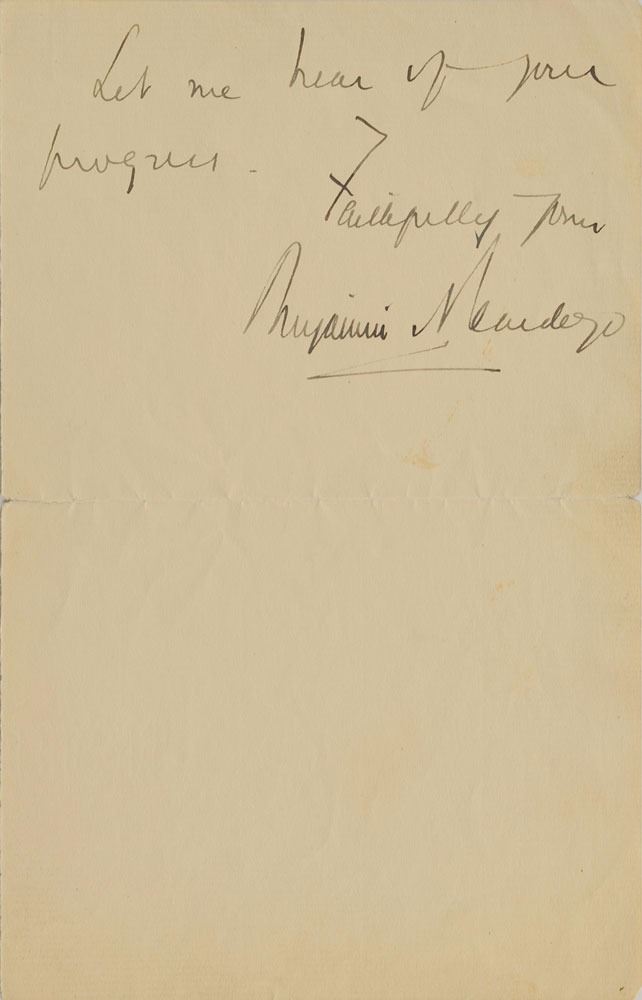 Let me hear of your
progress.
Faithfully yours
Benjamin N Cardozo